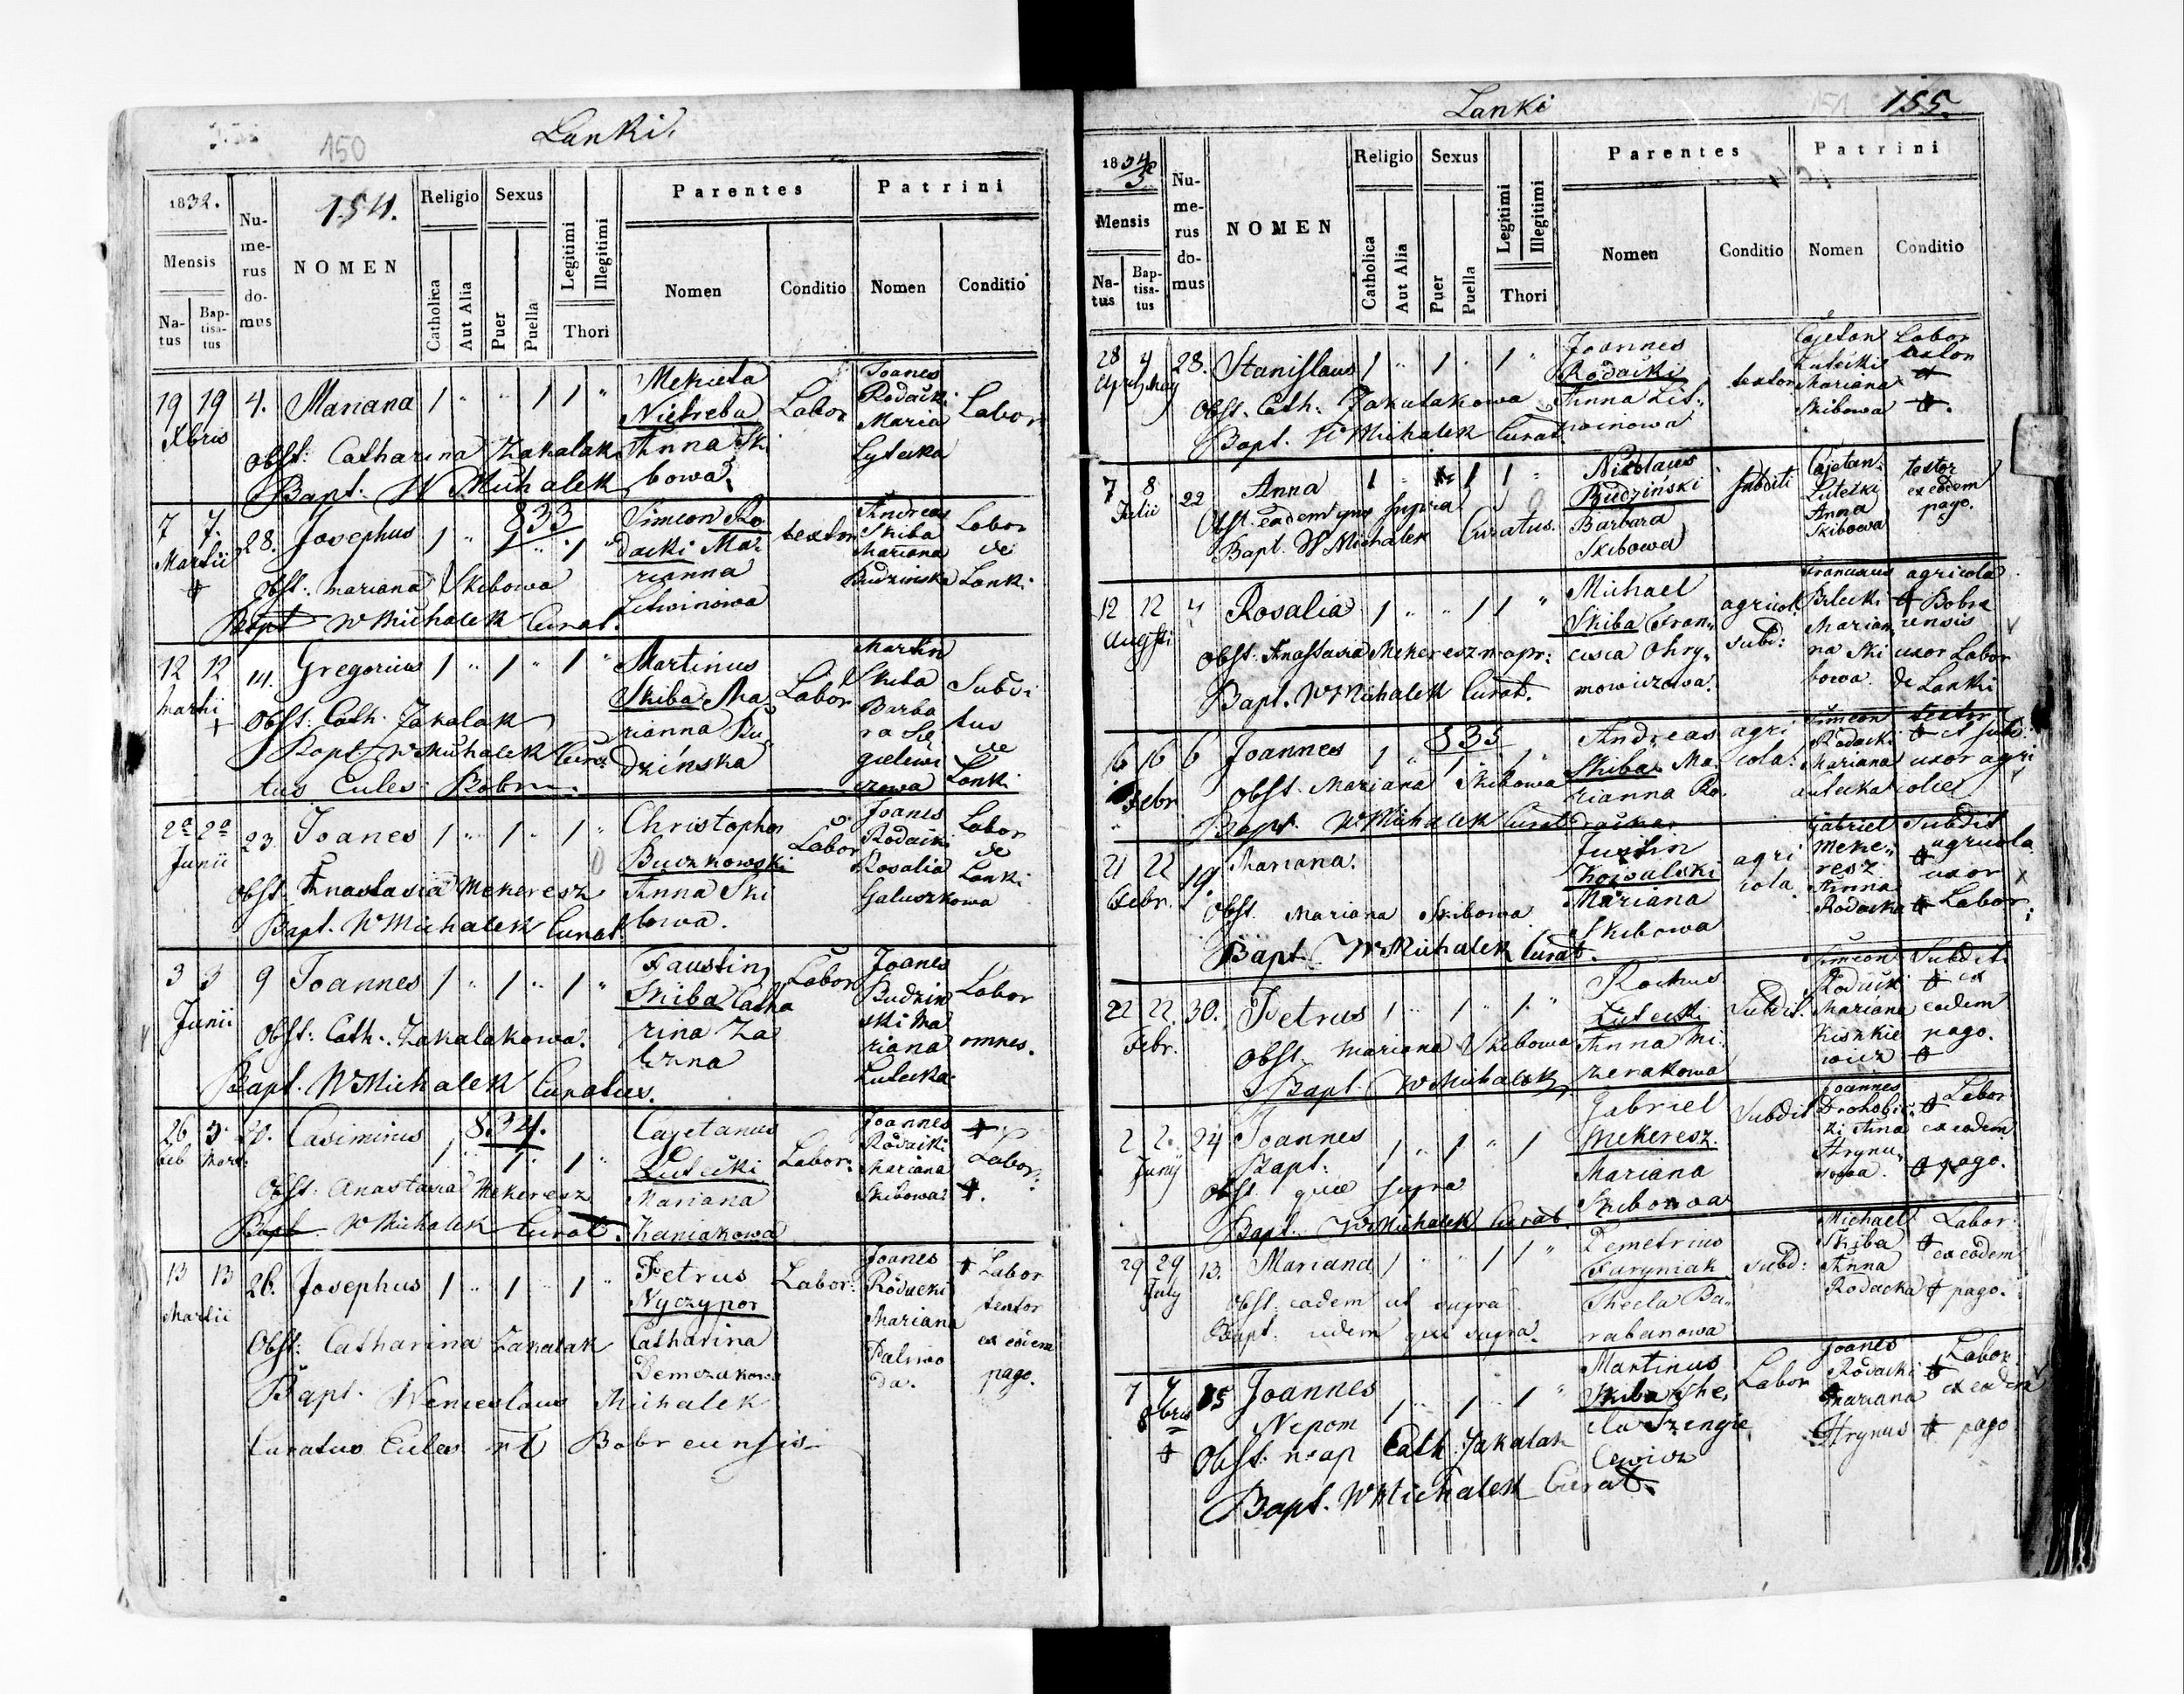 Lanki.
150
1832.
Mensis
Na-
tus
Bap-
tisa-
tus
Nu-
me-
rus
do-
mus
154.
NOMEN
Religio
Catholica
Aut Alia
Sexus
Puer
Puella
Legitimi
Illegitimi
Thori
Parentes
Nomen
Conditio
Patrini
Nomen
Conditio
19 19 4. Mariana 1 " " 1 1 "
Xbris
Obst: Catharina Zakalak
Bapt: W Michalek
Mekieta
Nietreba
Anna Ski
bowa.
Labor
Joanes
Rodacki
Maria
Lytecka
Labor
833
7 7. 28. Josephus 1 " 1 " 1 "
Martii
Obst: Mariana Skibowa
Bapt W Michalek Curat.
Simeon Ro
dacki Ma:
rianna
Litwinowa
textor
Andreas
Skiba
Mariana
Budzinska
Labor
de
Lanki
12 12 14. Gregorius 1 " 1 " 1 "
Martii
Obst: Cath. Zakalak
Bapt. W Michalek Cura:
tus Eccles: Bobr
Martinus
Skiba Ma:
rianna Bu„
dzińska
Labor
Martin
Skiba
Barba
ra Sę
gielewi
czowa
Subdi
tus
de
Lanki
2a 2a 23 Joanes 1 " 1 " 1 "
Junii
Obst: Anastasia Mekeresz
Bapt. W Michalek Curat.
Christophor
Buczkowski
Anna Ski
bowa.
Labor
Joanes
Rodacki
Rosalia
Galuszkowa
Labor
de
Lanki
3 3 9 Joannes 1 " 1 " 1 "
Junii
Obst: Cath. Zakalakowa.
Bapt. W Michalek Curatus.
Faustin
Skiba Catha
rina Za
lezna
Labor
Joanes
Budzin
ski Ma
riana
Lutecka
Labor
omnes.
834.
26 3 20. Casimirus 1 " 1 " 1 "
Feb Mart:
Obst: Anastasia Mekeresz
Bapt. W Michalek Curat.
Cajetanus
Lutecki
Mariana
Kaniakowa
Labor:
Joannes
Rodacki
Mariana
Skibowa
Labor:
13 13 26. Josephus 1 " 1 " 1 "
Martii
Obst: Catharina Zakalak
Bapt. Wenceslaus Michalek
Curatus Eccles r l Bobrcensis
Petrus
Nyczypor
Catharina
Demczukowa
Labor:
Joanes
Rodacki
Mariana
Paliwo
da.
Labor
textor
ex eodem
pago.
Lanki
151
155.
1834/5
Mensis
Na-
tus
Bap-
tisa-
tus
Nu-
me-
rus
do-
mus
NOMEN
Religio
Catholica
Aut Alia
Sexus
Puer
Puella
Legitimi
Illegitimi
Thori
Parentes
Nomen
Conditio
Patrini
Nomen
Conditio
28 4 28. Stanislaus 1 " 1 " 1 "
April May
Obst. Cath. Zakalakowa
Bapt. W Michalek Curat.
Joannes
Rodacki
Anna Lit:
winowa
textor
Cajetan
Lutecki
Mariana
Skibowa
Labor
7 8 22 Anna 1 " 1 1 "
Julii
Obst. eadem quae supra
Bapt. W Michalek Curatus.
Nicolaus
Budziński
Barbara
Skibowa
Subditi
Cajetan
Lutecki
Anna
Skibowa
textor
ex eodem
pago.
12 12 4 Rosalia 1 " " 1 1 "
Augusti
Obst. Anastasia Mekeresz n apr:
Bapt. W Michalek Curat.
Michael
Skiba Fran„
cisca Ohry„
mowiczowa.
agricol.
subd:
Franciscus
Bilecki
Marian
na Ski
bowa.
agricola
Bobr
censis
uxor Labor
de Lanki
835
16 16 6 Joannes 1 " 1 " 1 "
Febr
Obst. Mariana Skibowa
Bapt. W Michalek Curat
Andreas
Skiba Ma:
rianna Ro:
dacka
agri
cola.
Simeon
Rodacki
Mariana
Lutecka
textor
et subd:
uxor agri
colae
21 22 19. Mariana.
Febr.
Obst. Mariana Skibowa
Bapt. W Michalek Curat.
Justin
Kowalski
Mariana
Skibowa
agri
cola
Gabriel
Meke„
resz
Anna
Rodacka
Subdit
agricola
uxor
Labor:
22 22. 30. Petrus 1 " 1 " 1 "
Febr.
Obst. Mariana Skibowa
Bapt. W Michalek
Rochus
Lutecki
Anna Mi:
zerakowa
Subdit.
Simeon
Rodacki
Mariana
Kiszkie
wicz
Subdit.
ex
eodem
pago.
2 2. 24 Joannes 1 " 1 " 1
Junij
Bapt:
Obst. quae supra
Bapt. W Michalek Curat.
Gabriel
Mekeresz.
Mariana
Skibowa
Subdit
Joannes
Drohobic„
ki Anna
Hrynu„
sowa.
Labor
ex eodem
pago.
29 29 13. Mariana 1 " " 1 1 "
July
Obst. eadem ut supra.
Bapt. idem qui supra.
Demetrius
Furyniak
Thecla Ba„
rabanowa
subd:
Michael
Skiba
Anna
Rodacka
Labor:
ex eodem
pago.
7 8 15 Joannes
Nepom 1 " 1 " 1 "
Obst. n. ap Cath Zakalak
Bapt. W Michalek Curat.
Martinus
Skiba The„
cla Szengie
lewicz
Labor
Joanes
Rodacki
Mariana
Hrynus
Labor.
ex eodem
pago